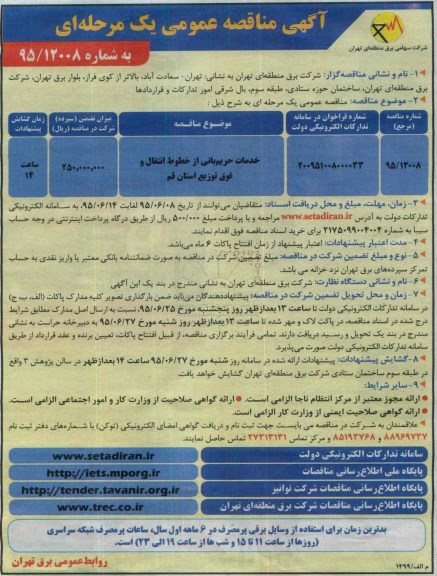 آگهی مناقصه عمومی یک مرحله‌ای
به شماره ۹۵/۱۲۰۰۸
شرکت سهامی برق منطقه‌ای تهران
۱- نام و نشانی مناقصه‌گزار: شرکت برق منطقه‌ای تهران به نشانی: تهران- سعادت آباد، بالاتر از کوی فراز، بلوار برق تهران، شرکت
برق منطقه‌ای تهران، ساختمان حوزه ستادی، طبقه سوم، بال شرقی امور تدارکات و قراردادها
۲- موضوع مناقصه: مناقصه عمومی یک مرحله ای به شرح ذیل :
شماره مناقصه (مرجع)
شماره فراخوان در سامانه تدارکات الکترونیکی دولت
موضوع مناقصه
میزان تضمین (سپرده) شرکت در مناقصه (ریال)
زمان گشایش پیشنهادات
۹۵/۱۲۰۰۸
۲۰۰۹۵۱۰۰۸۰۰۰۰۳۳
خدمات حریم‌بانی از خطوط انتقال و فوق توزیع استان قم
۲۵۰,۰۰۰,۰۰۰
ساعت ۱۴
۳- زمان، مهلت، مبلغ و محل دریافت اسناد: متقاضیان می‌توانند از تاریخ ۹۵/۰۶/۰۸ لغایت ۹۵/۰۶/۱۴، به سامانه الکترونیکی
تدارکات دولت به آدرس www.setadiran.ir مراجعه و با پرداخت مبلغ ۵۰۰/۰۰۰ ریال از طریق درگاه پرداخت اینترنتی در وجه حساب
سیبا به شماره ۲۱۷۵۰۹۹۰۰۴۰۰۴ برای خرید اسناد مناقصه فوق اقدام نمایند.
۴- مدت اعتبار پیشنهادات: اعتبار پیشنهاد از زمان افتتاح پاکات ۶ ماه می‌باشد.
۵- نوع و مبلغ تضمین شرکت در مناقصه: مبلغ تضمین شرکت در مناقصه به صورت ضمانتنامه بانکی معتبر یا واریز نقدی به حساب
تمرکز سپرده‌های برق تهران نزد خزانه می باشد.
۶- نام و نشانی دستگاه نظارت: شرکت برق منطقه‌ای تهران به نشانی مندرج در بند یک این آگهی
۷- زمان و محل تحویل تضمین شرکت در مناقصه: پیشنهاددهندگان می‌باید ضمن بارگذاری تصویر کلیه مدارک پاکات (الف، ب، ج)
در سامانه تدارکات الکترونیکی دولت تا ساعت ۱۳ بعدازظهر روز پنجشنبه مورخ ۹۵/۰۶/۲۵، نسبت به ارسال اصل مدارک مطابق شرایط
درج شده در اسناد مناقصه، در پاکت لاک و مهر شده تا ساعت ۱۳ بعدازظهر روز شنبه مورخ ۹۵/۰۶/۲۷ به دبیرخانه حراست به نشانی
مندرج در بند یک تحویل و رسید دریافت دارند. تمامی فرآیند برگزاری مناقصه، از قبیل افتتاح پاکات، تعیین برنده و عقد قرارداد از طریق
سامانه تدارکات الکترونیکی دولت صورت می‌پذیرد.
۸- گشایش پیشنهادات: پیشنهادات ارائه شده در سامانه روز شنبه مورخ ۹۵/۰۶/۲۷ ساعت ۱۴ بعدازظهر در سالن پژوهش ۳ واقع
در طبقه سوم ساختمان ستادی شرکت برق منطقه‌ای تهران گشایش خواهد یافت.
۹- سایر شرایط:
● ارائه مجوز معتبر از مرکز انتظام ناجا الزامی است. ● ارائه گواهی صلاحیت از وزارت کار و امور اجتماعی الزامی است.
● ارائه گواهی صلاحیت ایمنی از وزارت کار الزامی است.
علاقمندان به شرکت در مناقصه می بایست جهت ثبت نام و دریافت گواهی امضای الکترونیکی (توکن) با شماره‌های دفتر ثبت نام
۸۸۹۶۹۷۳۷ و ۸۵۱۹۳۷۶۸ و مرکز تماس ۲۷۳۱۳۱۳۱ تماس حاصل نمایند.
سامانه تدارکات الکترونیکی دولت www.setadiran.ir
پایگاه ملی اطلاع‌رسانی مناقصات http://iets.mporg.ir
پایگاه اطلاع‌رسانی مناقصات شرکت توانیر http://tender.tavanir.org.ir
پایگاه اطلاع‌رسانی مناقصات شرکت برق منطقه‌ای تهران www.trec.co.ir
بهترین زمان برای استفاده از وسایل برقی پرمصرف در ۶ ماهه اول سال، ساعات پرمصرف شبکه سراسری
(روزها از ساعت ۱۱ تا ۱۵ و شب ها از ساعت ۱۹ الی ۲۳) است.
روابط عمومی برق تهران
م الف/۱۴۹۹